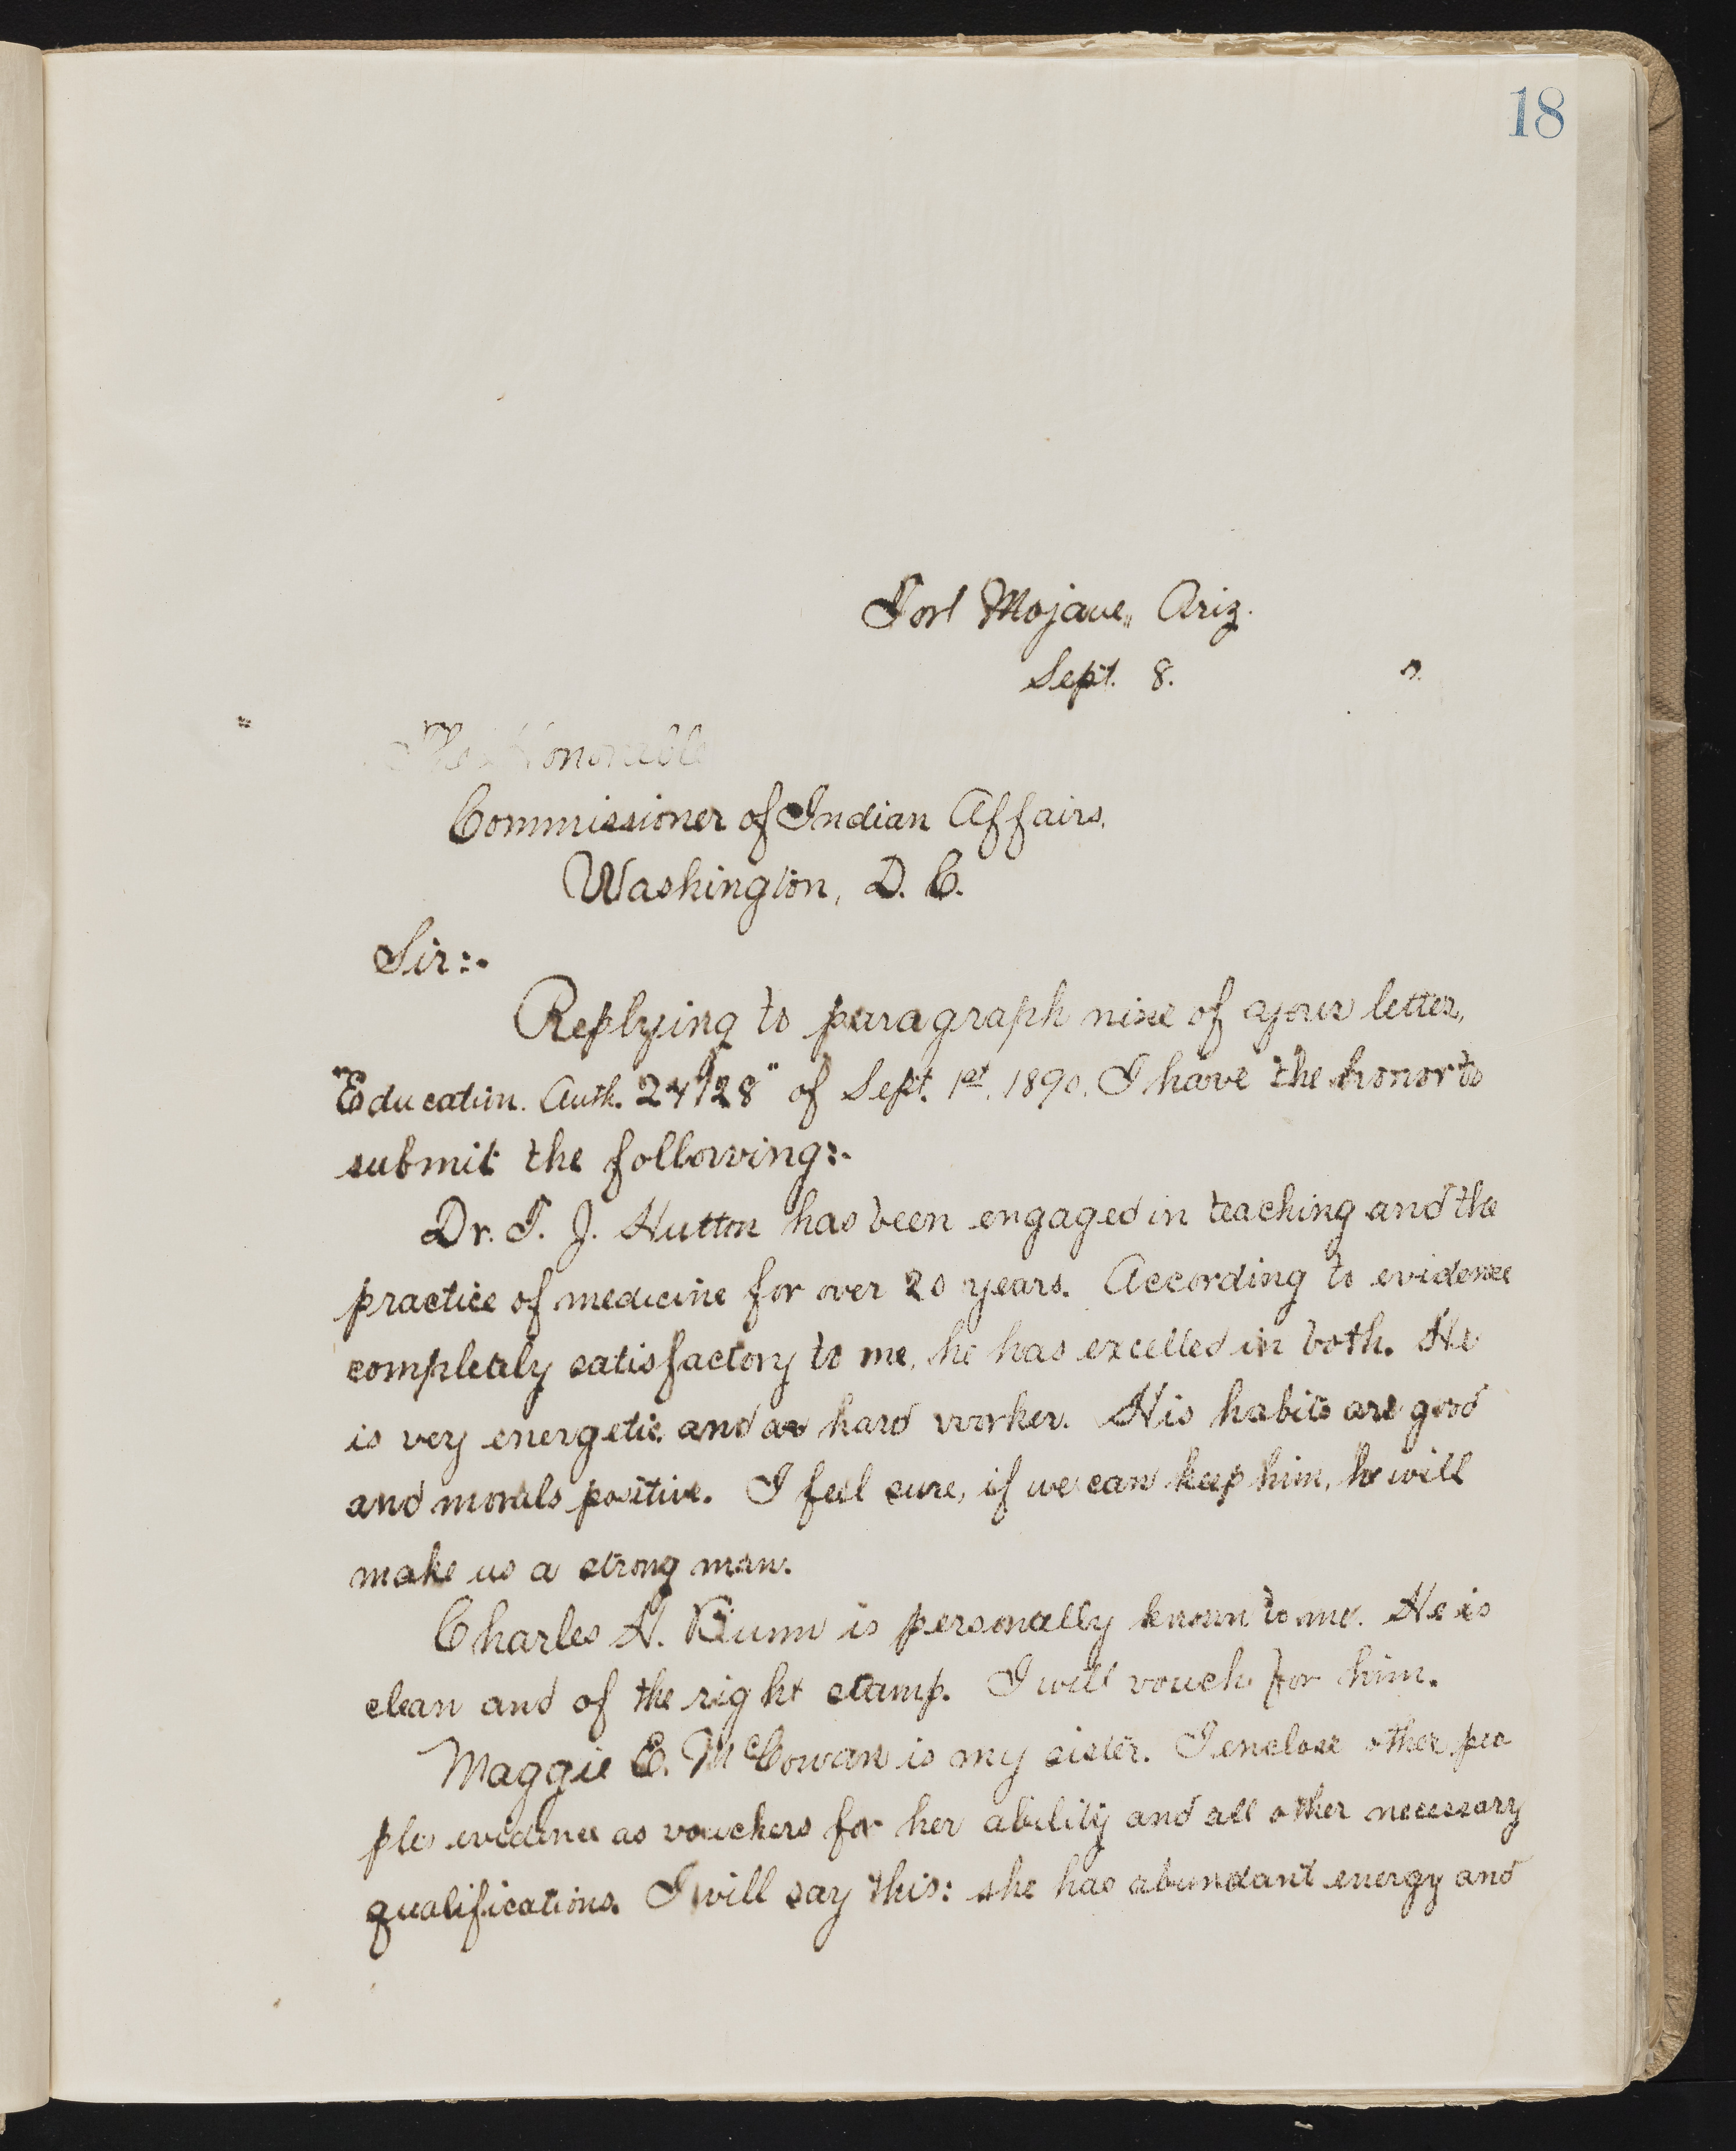 18
Fort Mojave, Ariz.
Sept. 8.
The Honorable
Commissioner of Indian Affairs,
Washington, D. C.
Sir:-
Replying to paragraph nine of your letter,
"Education. Auth. 24128" of Sept. 1st, 1890. I have the honor to
submit the following:-
Dr. T. J. Hutton has been engaged in teaching and the
practice of medicine for over 20 years. According to evidence
completely satisfactory to me, he has excelled in both. He
is very energetic and a hard worker. His habits are good
and morals positive. I feel sure, if we can keep him, he will
make us a strong man.
Charles H. is personally known to me. He is
clean and of the right stamp. I will vouch for him.
Maggie E. McCowan is my sister. I enclose other peo
ples evidence as vouchers for her ability and all other necessary
qualifications. I will say this: she has abundant energy and